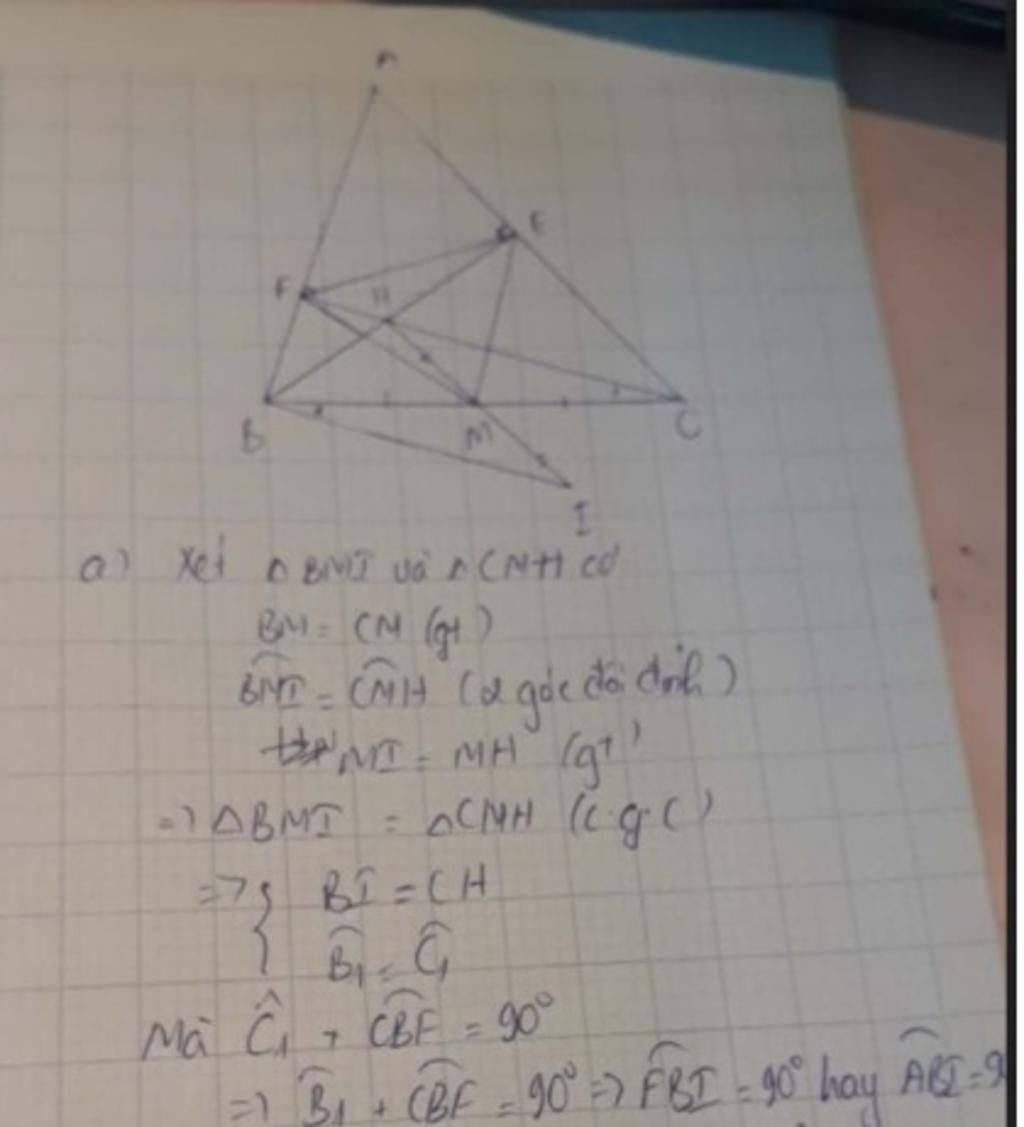 A
E
F
H
B
M
C
I
a) Xét △BMI và △CMH có
BM = CM (gt)
BMI = CMH (2 góc đối đỉnh)
MI = MH (gt)
=> △BMI = △CMH (c.g.c)
=> { BI = CH
B₁ = C₁
Mà Ĉ₁ + CBF = 90°
=> B₁ + CBF = 90° => FBI = 90° hay ABI = 9